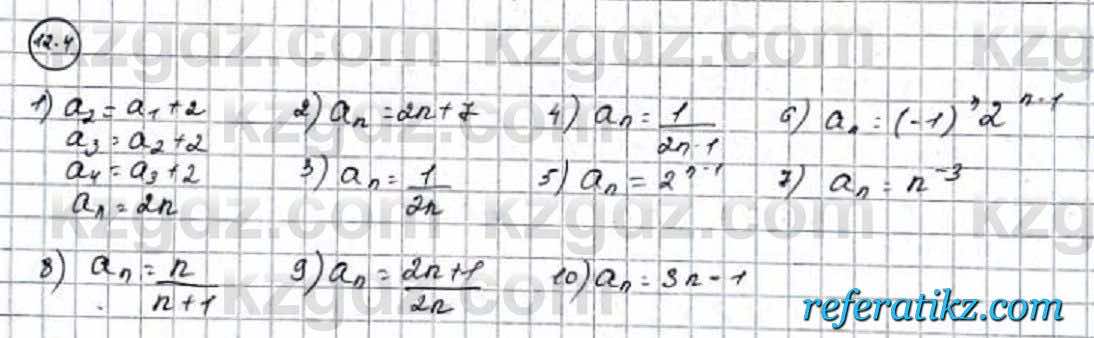 12.4
1) a₂ = a₁ + 2
a₃ = a₂ + 2
a₄ = a₃ + 2
aₙ = 2n
2) aₙ = 2n + 7
3) aₙ = 1/2n
4) aₙ = 1/2n-1
5) aₙ = 2ⁿ⁻¹
6) aₙ = (-1)ⁿ 2ⁿ⁻¹
7) aₙ = n⁻³
8) aₙ = n/n+1
9) aₙ = 2n+1/2n
10) aₙ = 3n - 1
kzgdz.com
referatikz.com